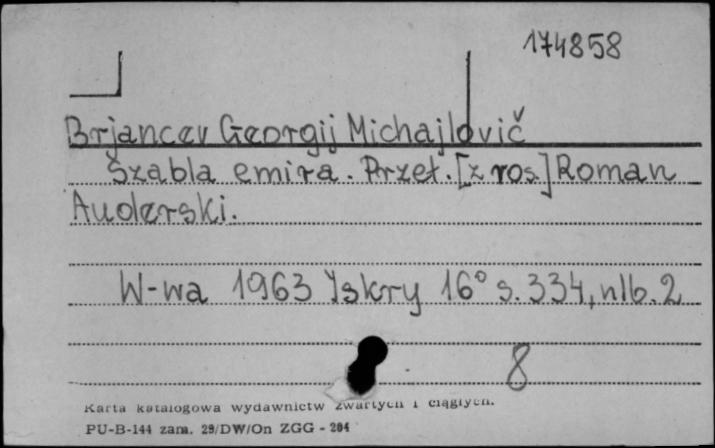 174858
Brjancev Georgij Michajlovič
Szabla emira. Przeł. [z ros.] Roman
Auderski.
W-wa 1963 Iskry 16° s. 334, nlb. 2
8
Karta katalogowa wydawnictw zwartych i ciągłych.
PU-B-144 zam. 29/DW/On ZGG - 204